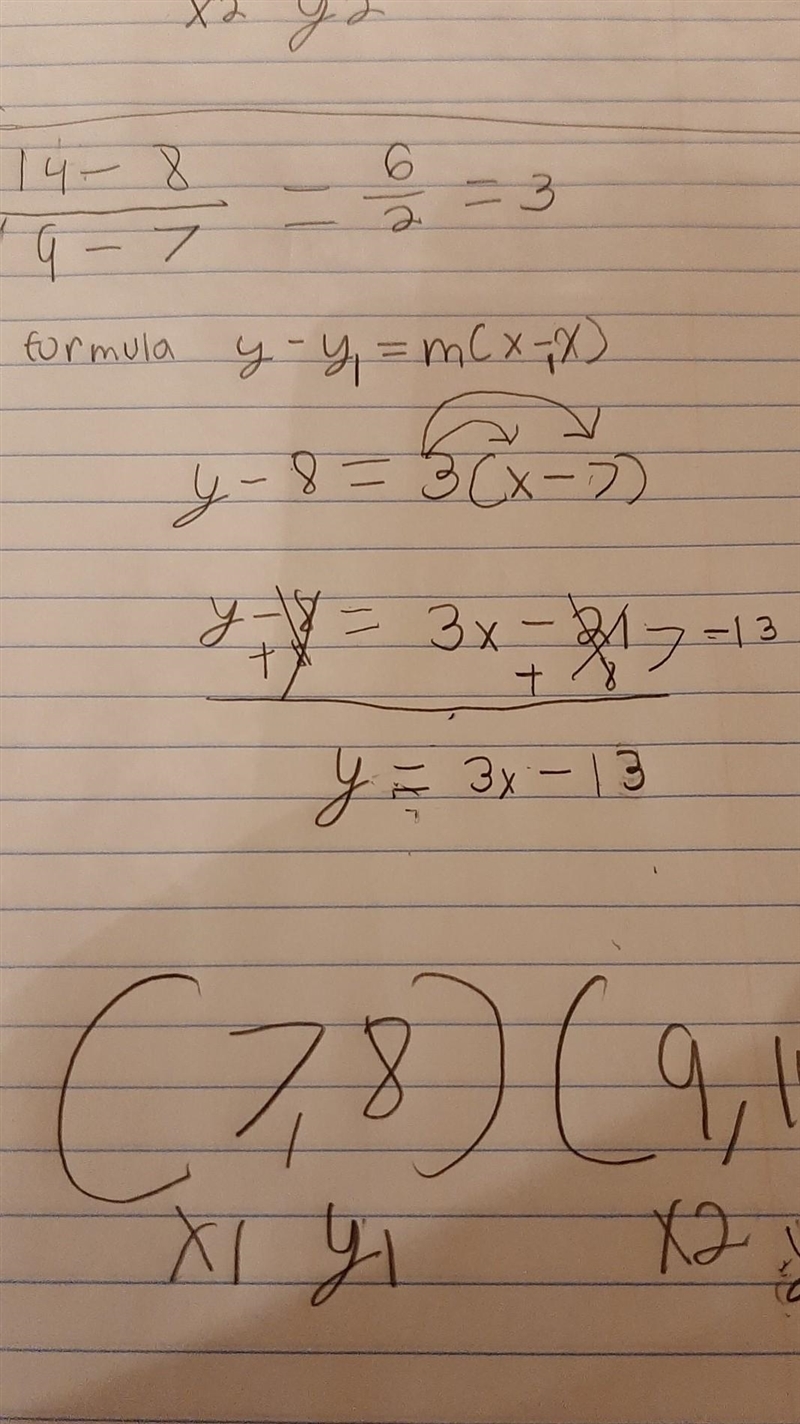 x2 y2
14 - 8 / 9 - 7 = 6/2 = 3
formula y - y1 = m(x - 1x)
y - 8 = 3(x - 7)
y - 8 = 3x - 21 7 = 13
+ 8 + 8
y = 3x - 13
(7, 8) (9, 1
x1 y1 x2